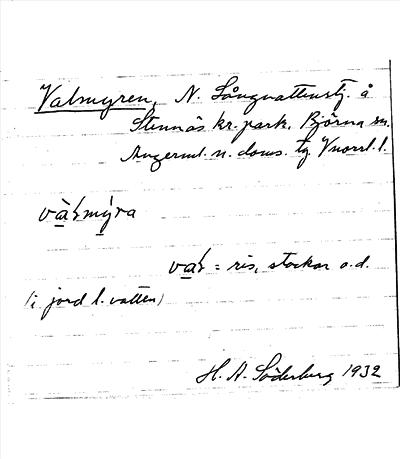 Valmyren, N. Långvattenstj. å
Stennäs kr.park. Björna sn.
Ångerml. n. doms. tg. Vnorrl. l.
val = ris, stockar o.d.
(i jord l. vatten)
H. A. Söderberg 1932